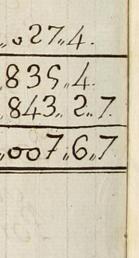 „027„4.
835„4.
843„2„7.
„007„6„7